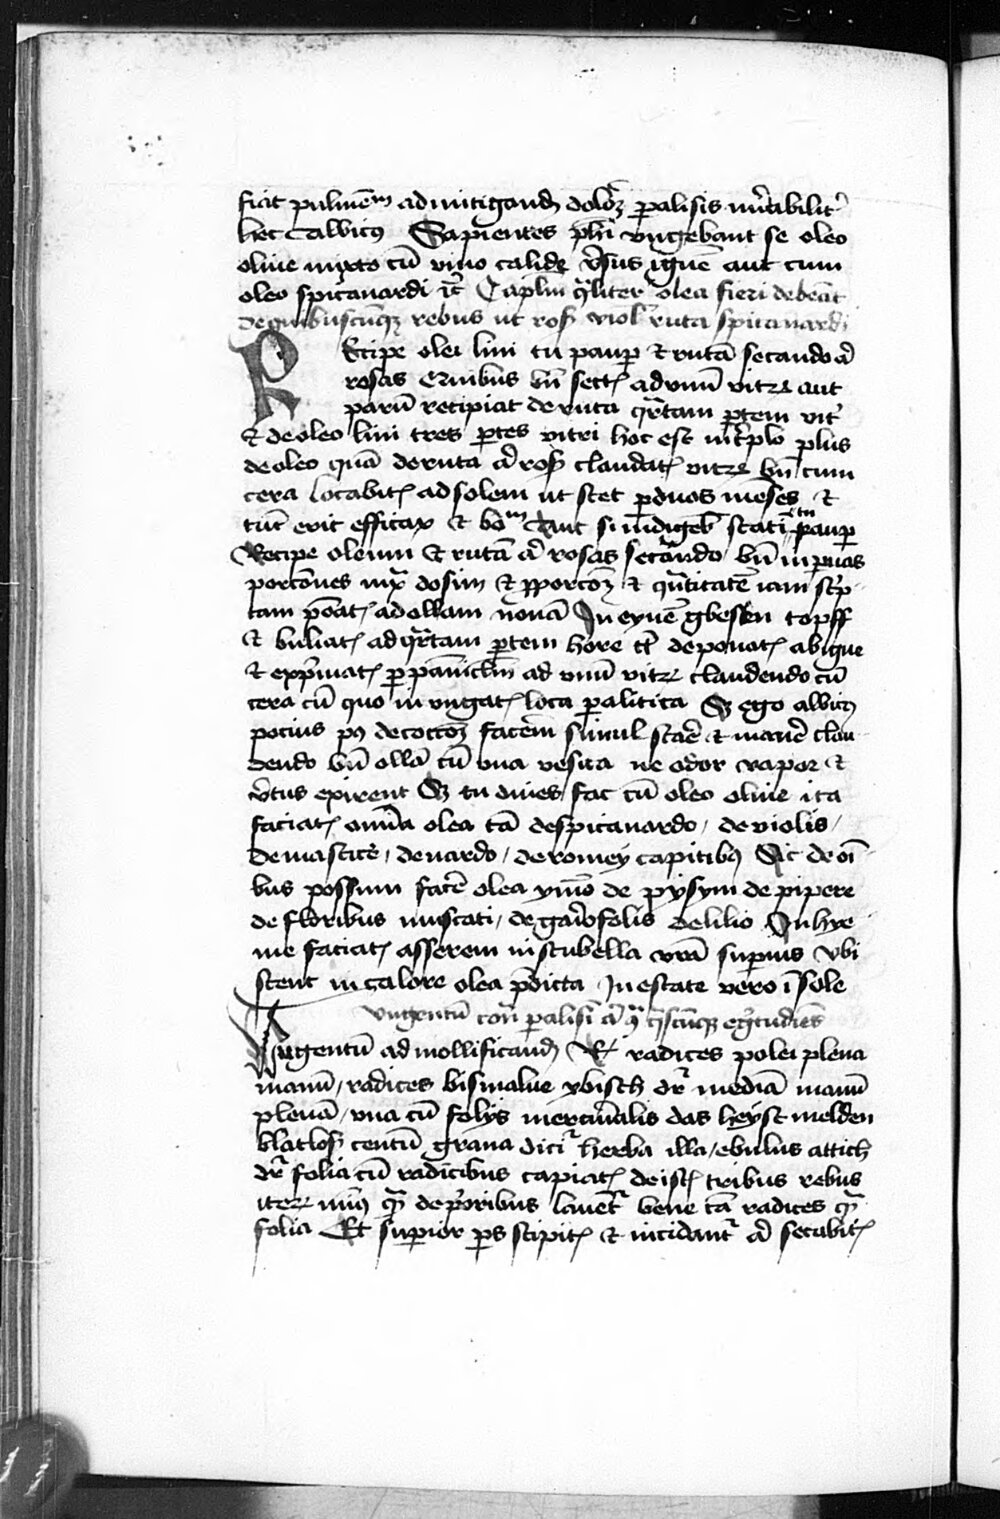 fiat pulmētᵐ ad mitigandꝫ dolorꝫ ꝑalisis mirabilitʳ
hec Talbicꝯ Sapientes phī vngebant se oleo
oliue mixto cū vino calido vsus ignē aut cum
oleo spicanardi itꝫ Caplm qͣliter olea fieri debeāt
de quibuscūqꝫ rebus ut roſꝫ viol ruta spicanardi
Recipe olei lini tu pauꝑ et rutā secando aͩ
rosas Crinibus bn̄ sectꝭ ad vnū vitrꝫ aut
parū recipiat de ruta qͣrtam ꝑtem vitͥ
et de oleo lini tres ꝑtes vitri hoc est in tͥplo plus
de oleo quā de ruta aͩ roſꝫ claudatꝭ vitrꝫ bn̄ cum
cera locabitꝭ ad solem ut stet ꝑ duos mēses et
tūc erit efficax et boᵐ Aut si indigebꝭ statī tu pauꝑ
Recipe oleum et rutā aͩ rosas secando bn̄ in ꝑuas
porcōnes iuxͣ dosim et ꝓporcoꝫ et qͣntitatē iam scͥp
tam ponatꝭ ad ollam nouā In eynē gbessen topff
et buliatꝭ ad qͣrtam ꝑtem hore et deponatꝭ ab igne
et expͥmatꝭ ꝑ pānicl̄m ad vnū vitrꝫ claudendo cū
cera cū quo in vngatꝭ loca ꝑalitica Sꝫ ego albicꝯ
pocius pꝰ decoctoꝫ facerē simul stare et manē clau
dendo bn̄ ollā cū vna vesica ne odor vapor et
vtus expirent Sꝫ tu diues fac cū oleo oliue ita
faciatꝭ omīa olea tā de spicanardo / de violis /
de masticē / de nardo / de romey capitibꝯ Sic de oī
bus possum facē olea ymō de pysym de pipere
de floribus muscati / de gariofolis de lilio In hye
me faciatꝭ asserem in stubella vrā supius vbi
stent in calore olea pͣdicta In estate vero ī sole
Vngentū contͣ ꝑalisī aͩ qͣ qͥscūqꝫ egͥtudies
Vngentū ad mollificandꝫ Rꝫ radices polei plena
manū / radices bismalue ybisch drͥ mediā manū
plenā / vna cū folijs mercuͥalis das heyst melden
blatloſꝫ centū grana dicitͥ herba illa / ebulus attich
drͥ folia cū radicibus capiatꝭ de istꝭ tribus rebus
iterꝫ minꝯ qͣꝫ de pͥoribus lauētͥ bene tā radices qͣꝫ
folia Et suꝑior ꝑs stipitꝭ et incidantͥ aͩ secabitꝭ